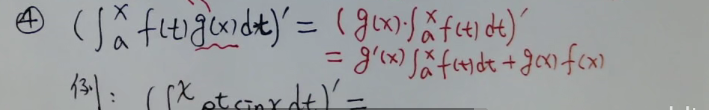 ④ (∫ₐˣ f(t)g(x)dt)′ = (g(x)·∫ₐˣ f(t)dt)′
= g′(x)∫ₐˣ f(t)dt + g(x)f(x)
例: (∫ˣ et sinx dt)′ =